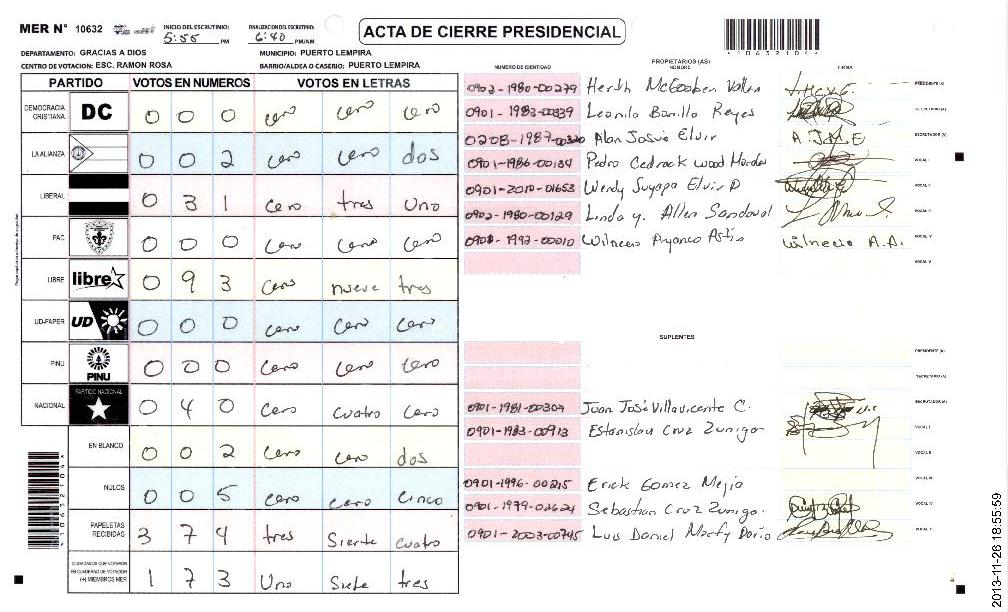 MER N° 10632
INICIO DEL ESCRUTINIO: 5:55 PM
FINALIZACION DEL ESCRUTINIO: 6:40 PM/AM
ACTA DE CIERRE PRESIDENCIAL
*10632104*
DEPARTAMENTO: GRACIAS A DIOS
MUNICIPIO: PUERTO LEMPIRA
CENTRO DE VOTACION: ESC. RAMON ROSA
BARRIO/ALDEA O CASERIO: PUERTO LEMPIRA
PARTIDO VOTOS EN NUMEROS VOTOS EN LETRAS
DEMOCRACIA CRISTIANA DC 0 0 0 cero cero cero
LA ALIANZA 0 0 2 cero cero dos
LIBERAL 0 3 1 cero tres Uno
PAC 0 0 0 cero cero cero
LIBRE libre 0 9 3 cero nueve tres
UD-FAPER UD 0 0 0 cero cero cero
PINU PINU 0 0 0 cero cero cero
NACIONAL PARTIDO NACIONAL 0 4 0 cero cuatro cero
EN BLANCO 0 0 2 cero cero dos
NULOS 0 0 5 cero cero cinco
PAPELETAS RECIBIDAS 3 7 4 tres Siete cuatro
CIUDADANOS QUE VOTARON EN CUADERNO DE VOTACION (+) MIEMBROS MER 1 7 3 Uno Siete tres
*10632104*
PROPIETARIOS (AS)
NUMERO DE IDENTIDAD NOMBRE FIRMA
0902-1980-00279 PRESIDENTE (A)
0901-1983-00339 Leonilo Bonillo Reyes SECRETARIO (A)
0208-1987-00320 Alan Josué Elvir A.J.M.E ESCRUTADOR (A)
0901-1986-00134 Pedro Wood VOCAL I
0901-2010-01653 Wendy Suyapa Elvir P VOCAL II
0902-1980-00129 Linda y. Allen Sandoval VOCAL III
1992-00010 Wilnecio Wilnecio A.A. VOCAL IV
VOCAL V
SUPLENTES
PRESIDENTE (A)
SECRETARIO (A)
0901-1981-00304 Juan José Villavicente C. ESCRUTADOR (A)
0901-1983-00913 Estanislau Cruz Zuniga VOCAL I
VOCAL II
0901-1996-00215 Erick Gomez Mejia VOCAL III
0901-1979-02624 Sebastian Cruz Zuniga VOCAL IV
0901-2003-00745 Luis Daniel VOCAL V
2013-11-26 18:55:59